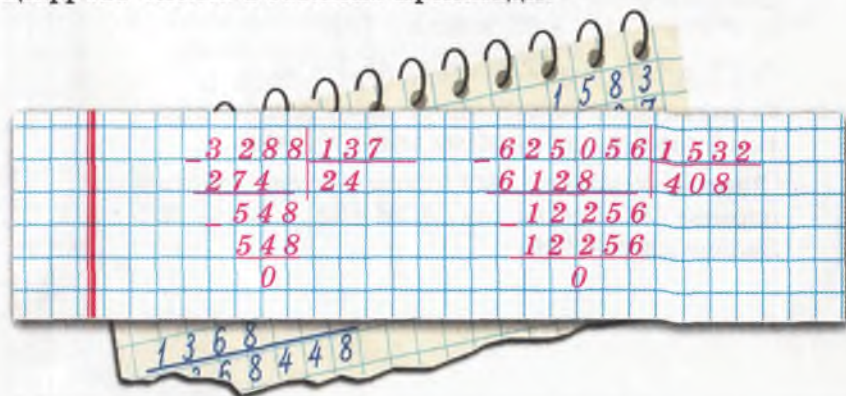 1583
3288 137
274 24
548
548
0
625056 1532
6128 408
12256
12256
0
1368
68448